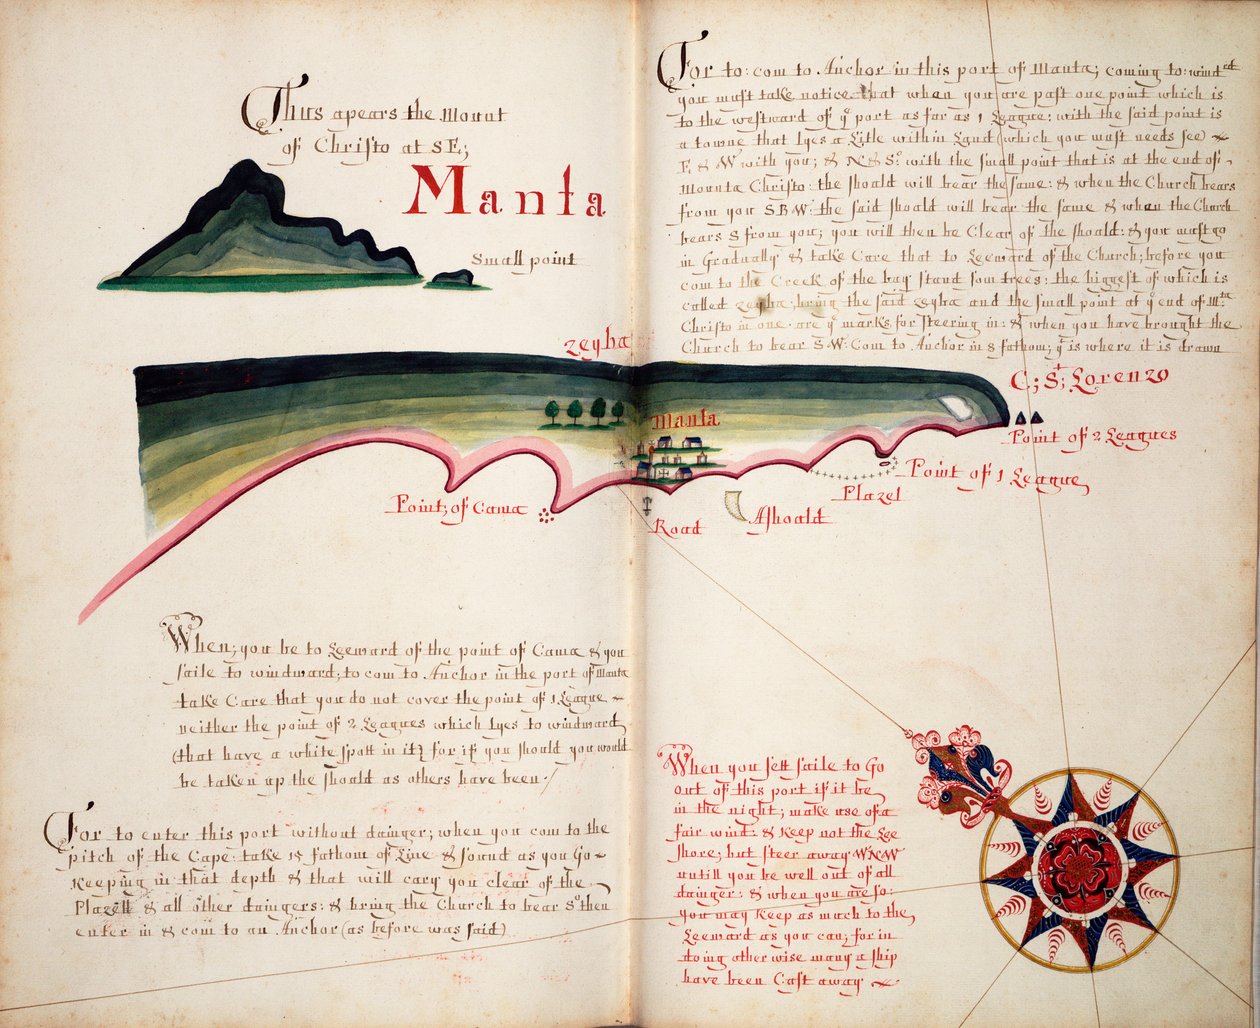 Thus apears the Mount
of Christo at SE;
Manta
Small point
zeyba
Manta
C; St: Lorenzo
Point of 2 Leagues
Point of 1 League
Plazel
A shoald
Road
Point of Cama
When; you be to Leeward of the point of Cama & you
saile to windward; to com to Anchor in the port of Manta
take Care that you do not cover the point of 1 League ~
neither the point of 2 Leagues which Lyes to windward
(that have a white spott in it) for if you should you would
be taken up the shoald as others have been /
For to enter this port without dainger; when you com to the
pitch of the Cape: take 15 fathom of Line & sound as you Go ~
Keeping in that depth & that will cary you clear of the
Plazell & all other daingers: & bring the Church to bear So then
enter in & com to an Anchor (as before was said)
For to: com to Anchor in this port of Manta; coming to: windrd
you must take notice that when you are past one point which is
to the westward of ye port as far as 1 League: with the said point is
a towne that Lyes a Litle within Land (which you must needs see) ~
E & W with you; & N & So: with the small point that is at the end of
Mounta Christo: the shoald will bear the same: & when the Church bears
from you SBW: the said shoald will bear the same & when the Church
bears S from you; you will then be Clear of the shoald: & you must go
in Gradually & take Care that to Leeward of the Church; before you
com to the Creek of the bay stand som trees: the biggest of which is
called zeyba; bring the said zeyba and the small point at ye end of Mta
Christo in one are ye marks for steering in: & when you have brought the
Church to bear SW: Com to Anchor in 8 fathom; yt is where it is drawn
When you sett saile to Go
out of this port if it be
in the night; make use of a
fair wind: & Keep not the Lee
shore; but steer away WNW
untill you be well out of all
dainger: & when you are so:
you may Keep as much to the
Leeward as you can; for in
doing other wise many a ship
have been Cast away ~